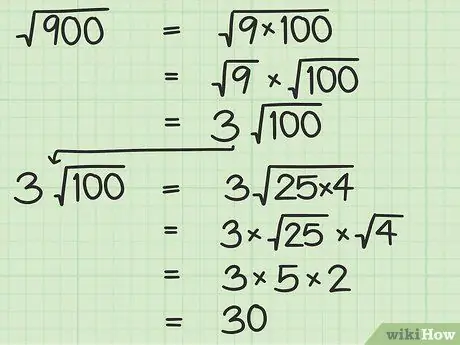 √900 = √9×100
= √9 × √100
= 3 √100
3 √100 = 3√25×4
= 3×√25 ×√4
= 3×5×2
= 30
wikiHow